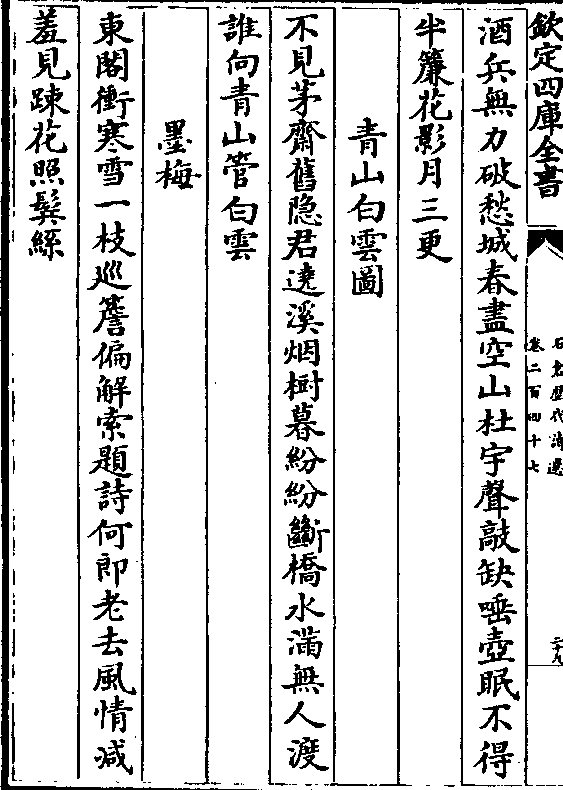 欽定四庫全書
石倉歷代詩選
卷二百四十七
二十九
酒兵無力破愁城春盡空山杜宇聲敲缺唾壺眠不得
半簾花影月三更
青山白雲圖
不見茅齋舊隐君遶溪烟樹暮紛紛斷橋水滿無人渡
誰向青山管白雲
墨梅
東閣衝寒雪一枝廵簷偏解索題詩何郎老去風情减
羞見踈花照鬂絲